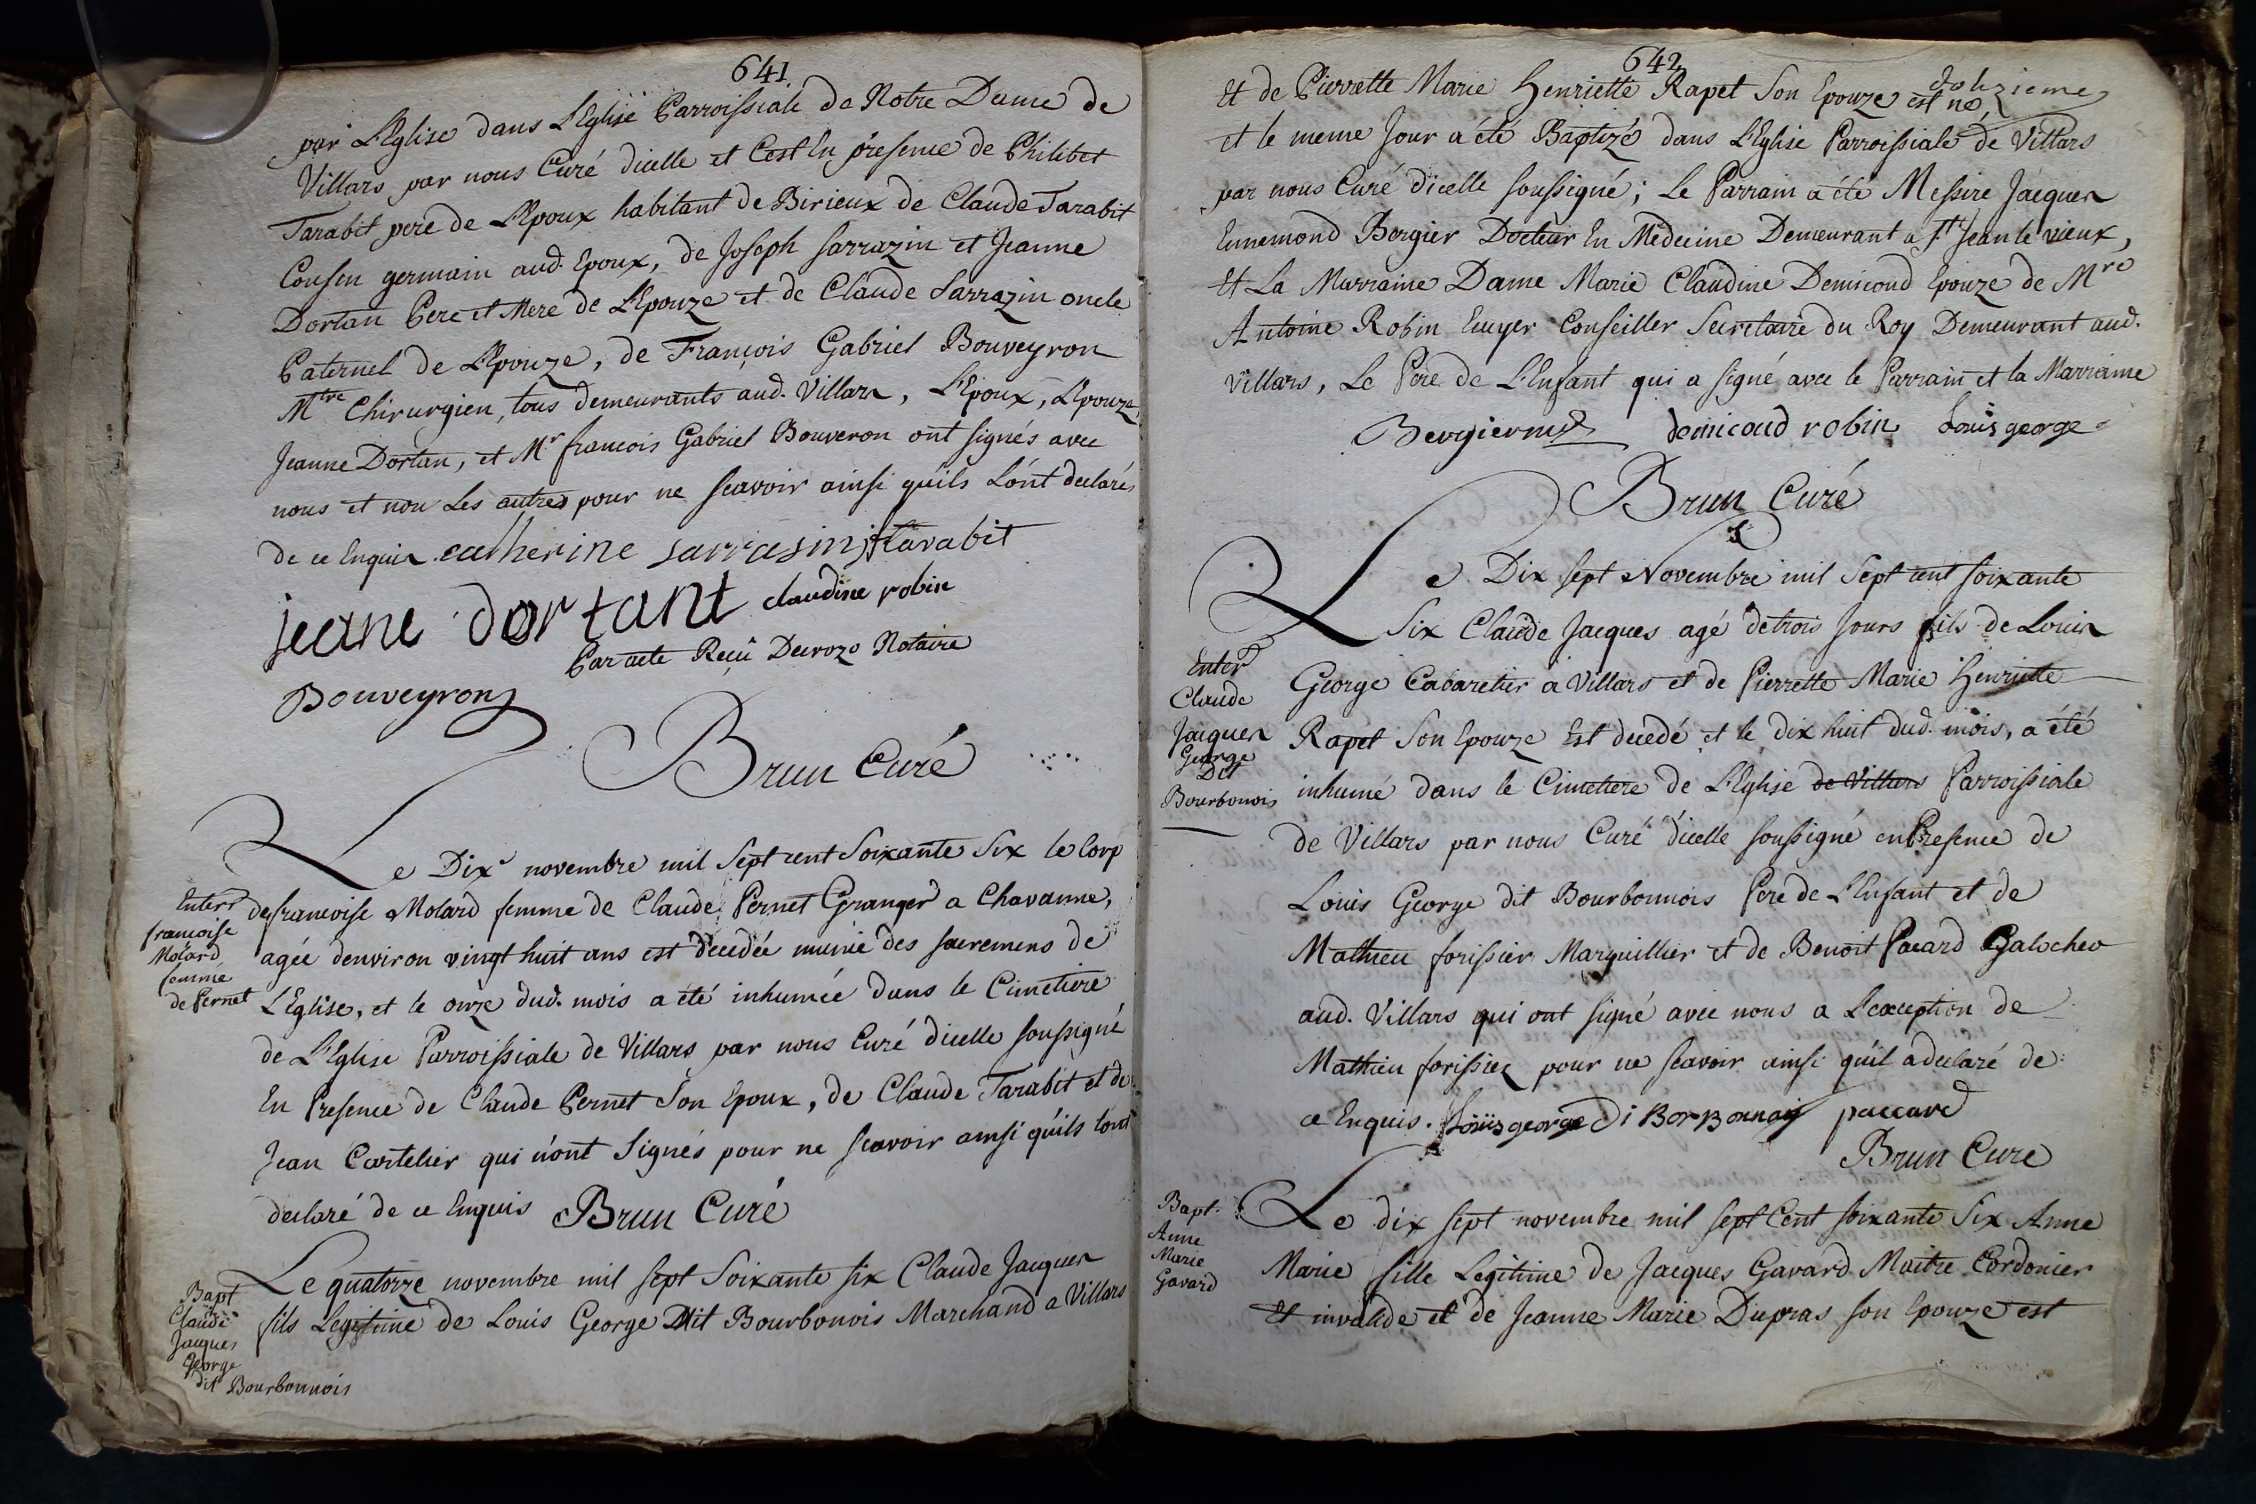 641
par L'Eglise dans L'Eglise Parroissiale de Notre Dame de
Villars par nous Curé dicelle et C'est En présence de Philibet
Tarabit pere de L'Epoux habitant de Birieux de Claude Tarabit
Cousin germain aud. Epoux, de Joseph Sarrazin et Jeanne
Dortan Pere et Mere de L'Epouze et de Claude Sarrazin oncle
Paternel de L'Epouze, de François Gabriel Bouveyron
Mtre Chirurgien, tous demeurants aud. Villars, L'Epoux, L'Epouze,
Jeanne Dortan, et Mr francois Gabriel Bouveron ont signés avec
nous et non Les autres pour ne scavoir ainsi quils L'ont declarés
de ce Enquis catherine sarrasin tarabit
jeane dortant claudine robin
Par acte Reçu Decroze Notaire
Bouveyron
Brun Curé
Enterr
francoise
Molard
femme
de Pernet
Le Dix novembre mil Sept cent Soixante Six le Corp
de francoise Molard femme de Claude Pernet Granger a Chavanne,
agée denviron vingt huit ans est decedée munie des sacremens de
L'Eglise, et le onze dud. mois a été inhumée dans le Cimetiere
de L'Eglise Parroissiale de Villars par nous Curé dicelle soussigné
En Presence de Claude Pernet Son Epoux, de Claude Tarabit et de
Jean Cartelier qui n'ont Signés pour ne scavoir ainsi quils lont
declaré de ce Enquis Brun Curé
Bapt
Claude
Jacques
George
dit Bourbonnois
Le quatorze novembre mil sept Soixante six Claude Jacques
fils Legitime de Louis George Dit Bourbonois Marchand a Villars
642
Et de Pierrette Marie Henriette Rapet Son Epouze est né
et le meme Jour a été Baptizé dans L'Eglise Parroissiale de Villars
par nous Curé dicelle soussigné; Le Parrain a été Messire Jacques
Ennemond Bergier Docteur En Medecine Demeurant a St Jean le vieux,
Et La Marraine Dame Marie Claudine Demicoud Epouze de Mre
Antoine Robin Ecuyer Conseiller Secretaire du Roy Demeurant aud.
Villars, Le Pere de L'Enfant qui a signé avec le Parrain et la Marraine
Bergier demicoud robin Louis george
Brun Curé
Enterr
Claude
Jacques
George
Dit
Bourbonois
Le Dix sept Novembre mil Sept cent soixante
Six Claude Jacques agé de trois Jours fils de Louis
George Cabaretier a Villars et de Pierrette Marie Henriette
Rapet Son Epouze Est decedé et le dix huit dud. mois, a été
inhumé dans le Cimetiere de L'Eglise de Villars Parroissiale
de Villars par nous Curé dicelle soussigné en Presence de
Louis George dit Bourbonnois Pere de L'Enfant et de
Mathieu forissier Marguillier et de Benoit Pacard Galocher
aud. Villars qui ont signé avec nous a L'exception de
Mathieu forissier pour ne scavoir ainsi quil a declaré de
ce Enquis. Louis george di Borbonnois paccard
Brun Cure
Bapt.
Anne
Marie
Gavard
Le dix sept novembre mil sept Cent soixante Six Anne
Marie fille Legitime de Jacques Gavard Maitre Cordonier
Et invalide et de Jeanne Marie Dupras son Epouze est